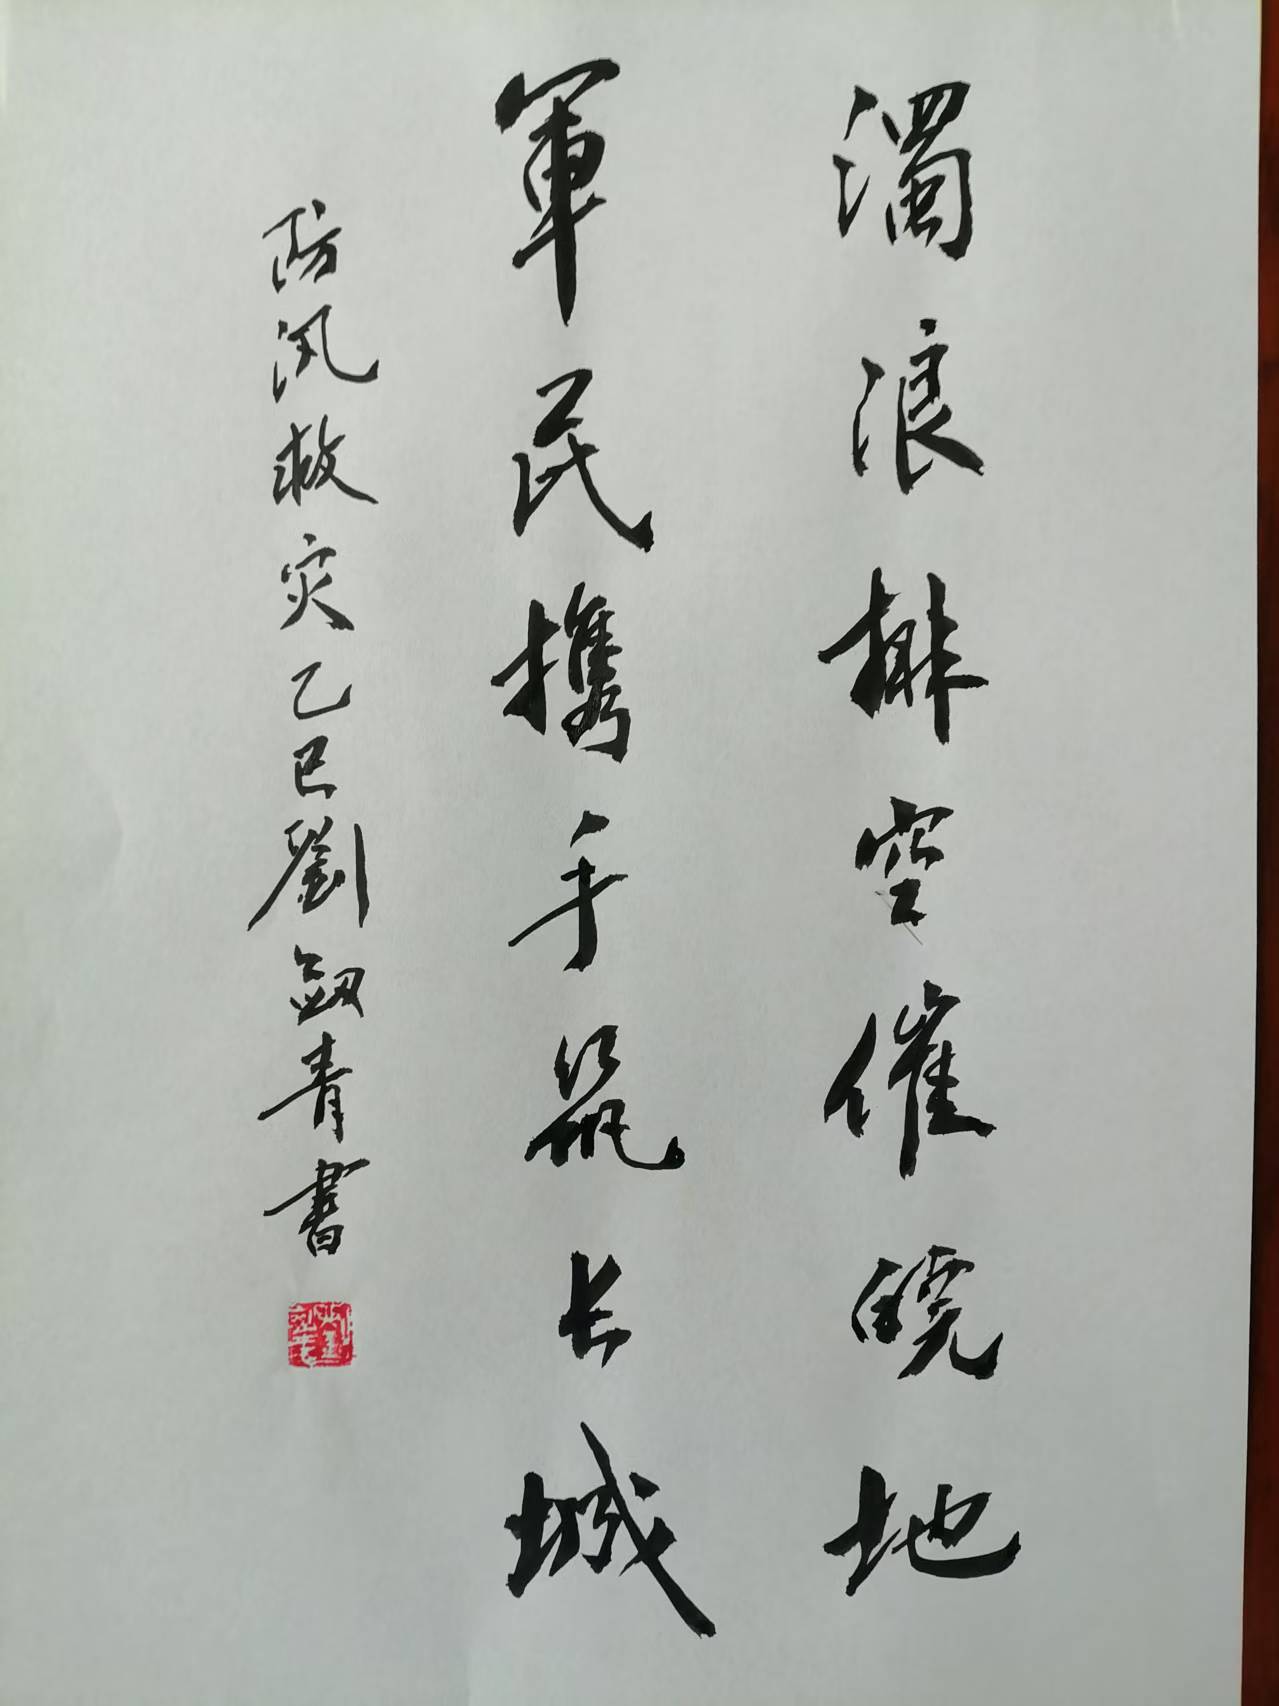 濁浪排空催皢地
軍民擕手筑长城
防汛救灾乙巳劉劔青書